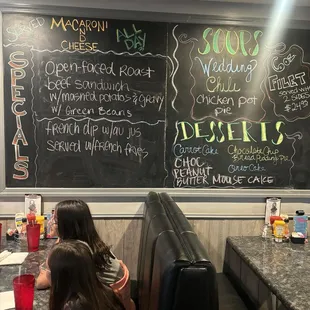 Served
MACARONI
N
CHEESE
ALL
DAY
SPECIALS
Open-Faced Roast
beef sandwich
w/mashed potatoes & gravy
w/ Green Beans
french dip w/au jus
served w/french fries
SOUPS
Wedding
Chili
Chicken pot
pie
COD
FILET
served with
2 sides
DESSERTS
Carrot Cake
CHOC.
PEANUT
BUTTER MOUSE CAKE
Chocolate Chip
Bread Pudding
Oreo Cake